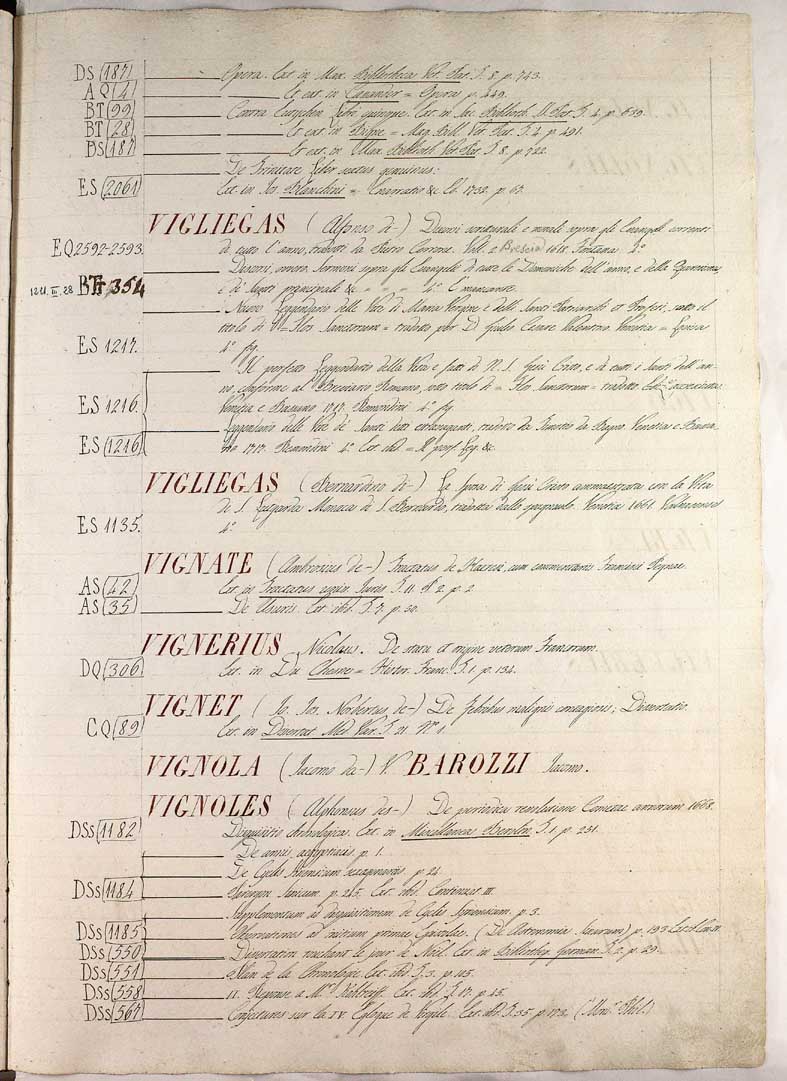 DS (187) ——— Opera. Est. in Max. Bibliotheca Vet. Pat. T. 8. p. 743.
AQ (4) ——— Et est. in = Opera p. 449.
BT (99) ——— Contra Eutychen Libri quinque. Est. in Bibliot. V. Pat. T. 4. p.
BT (28) ——— Et est. in Bigne = Mag. Bibl. Vet. Pat. T. 4. p. 491.
BS (187 ——— Et est. in Max. Biblioth. Vet. Pat. T. 8. p. 722.
——— De Trinitate Liber
ES (2061) Est. in Jos. Blanchini = Enarratio &c. p. 67.
VIGLIEGAS (Alfonso de-) Discorsi e morale sopra gli Evangelj correnti
EQ 2592-2593. di tutto l'anno, tradotti da Pietro Voll. 2 Brescia 1618. Fontana 4.º
——— Discorsi, ovvero Sermoni sopra gli Evangelj di tutte le Domeniche dell'anno, e della Quaresima
1221. III. 28 BTT 354 e di principali &c. = „ = „ 4.º
——— Nuovo Leggendario delle Vite di Maria Vergine e delli Santi et Profeti, sotto il
titolo di = Flos Sanctorum = tradotto per D. Giulio Cesare Valentino. Venetia =
ES 1217. 4.º fig.
——— Il perfetto Leggendario della Vita e fatti di N. S. Gesù Cristo, e di tutti i Santi dell'an-
no, conforme al Breviario Romano, sotto titolo di = Flos Sanctorum = tradotto
ES 1216. Venezia e Bassano 1717. Remondini 4.º fig.
——— Leggendario delle Vite di Santi detti estravaganti, tradotto da Timoteo da Bagno. Venezia e Bassa-
ES (1216) no 1717. Remondini 4.º Est. ibid. = Il perf. Leg. &c.
VIGLIEGAS (Bernardino de-) La Sposa di Gesù Cristo ammaestrata con la Vita
di S. Lutgarda Monaca di S. Bernardo, tradotta dallo spagnuolo. Venezia 1661.
ES 1135. 4.º
VIGNATE (Ambrosius de-) Tractatus de Haeresi, cum commentariis Francisci Pegnae.
AS (42) Est. in Tractatus T. 11. P. 2. p. 2
AS (35) ——— De Usuris. Est. ibid. T. 7. p. 50.
VIGNERIUS Nicolaus. De statu et origine veterum Francorum.
DQ (306) Est. in Du Chesne = Histor. Franc. T. 1. p. 134.
VIGNET (Io. Jos. Norbertus de-) De febribus malignis contagiosis; Dissertatio.
CQ (89) Est. in Dissertat. Med. Var. T. 21. N.º 1.
VIGNOLA (Iacomo da-) V. BAROZZI Iacomo.
VIGNOLES (Alphonsus des-) De periodica revolutione Cometae annorum 1668.
DSs (1182 Disquisitio chronologica. Est. in Miscellanea Berolin. T. 1. p. 231.
——— De annis aegyptiacis p. 1.
——— De Cyclis Sinensium sexagenariis. p. 24.
DSs (1184 ——— Sinicum. p. 245. Est. ibid. Continuat. III.
——— Supplementum ad disquisitionem de Cyclis Sinensium. p. 3.
DSs (1185 ——— Observationes ad initium primae Epistolae. (De Astronomia Sinarum) p. 193
DSs (550 ——— Dissertation touchant le jour de Noël. Est. in Biblioteq. German. T. 2. p. 29.
DSs (551 ——— Plan de la Chronologie. Est. ibid. T. 3. p. 115.
DSs (558 ——— II. Réponse à Mr. Kohlreiff. Est. ibid. T. 17. p. 45.
DSs (567 ——— Conjectures sur la IV. Eglogue de Virgile. Est. ibid. T. 35. p. 173.